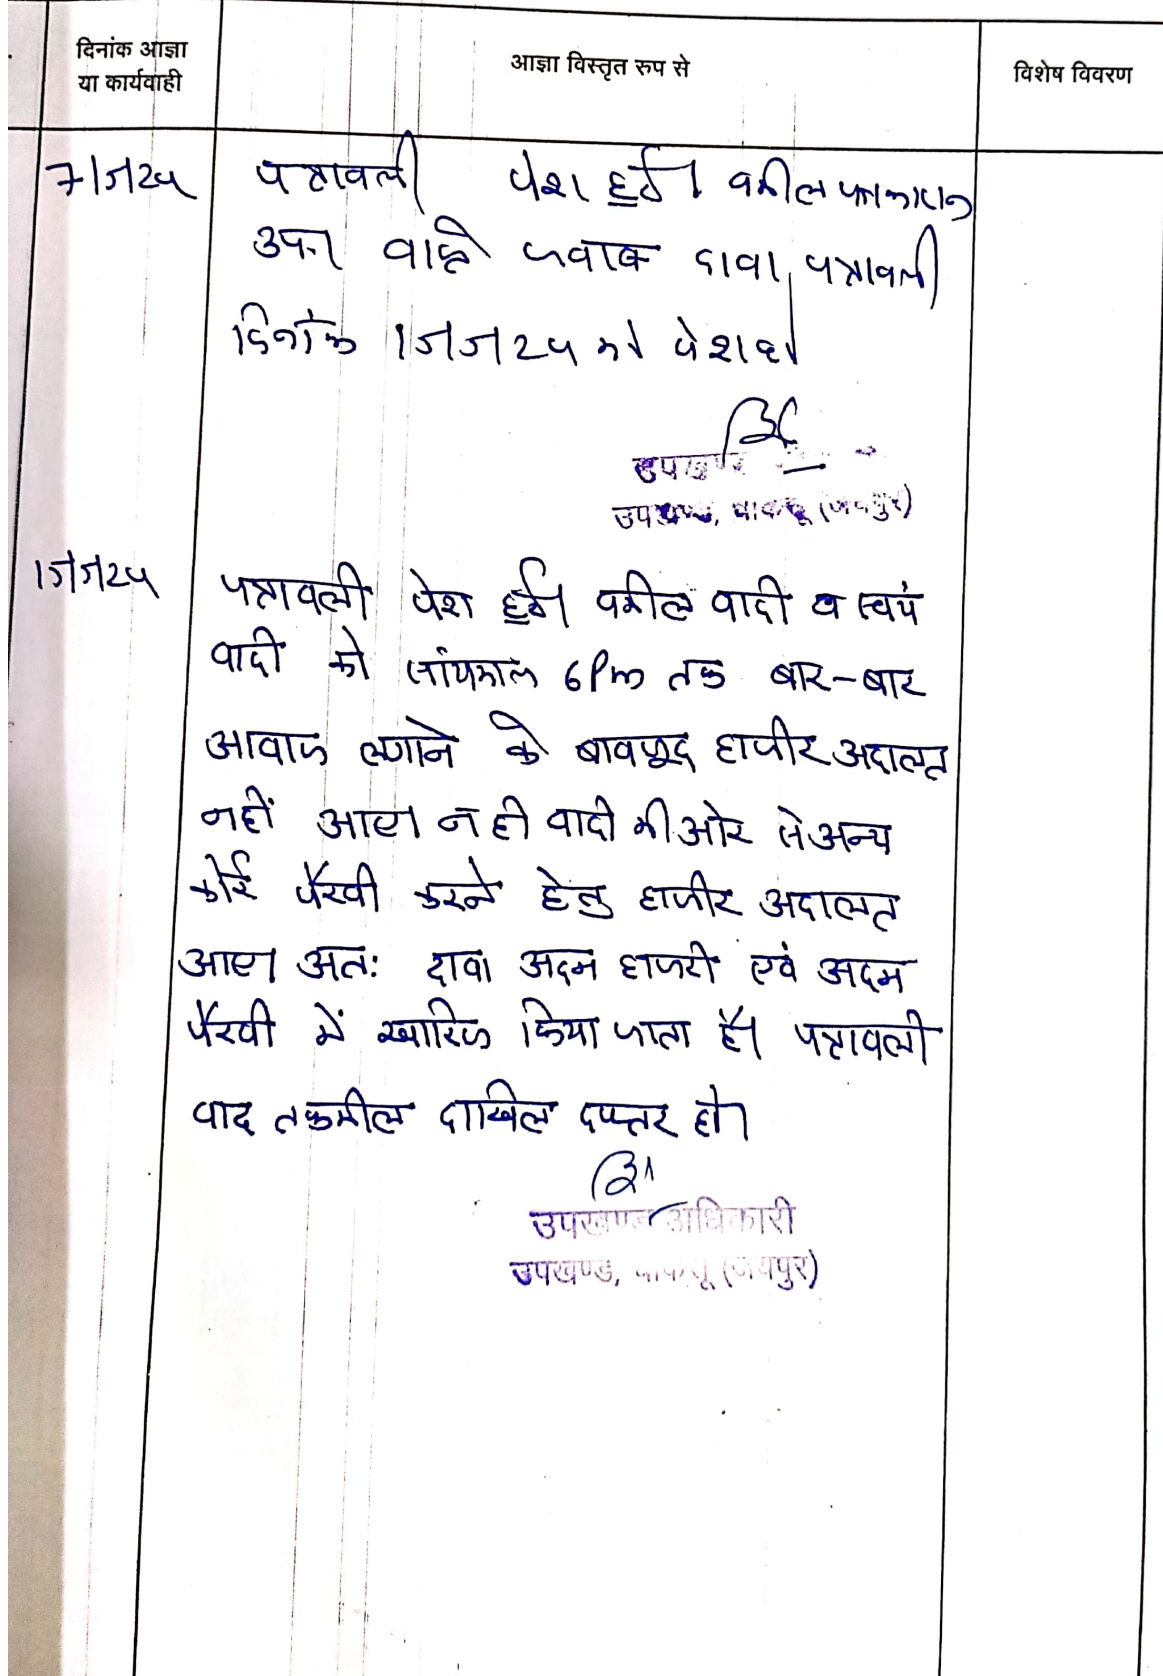 दिनांक आज्ञा
या कार्यवाही
आज्ञा विस्तृत रुप से
विशेष विवरण
पत्रावली पेश हुई। वकील
उप. वास्ते जवाब दावा, पत्रावली
दिनांक को पेश हो
उपखण्ड
उपखण्ड, चाकसू (जयपुर)
पत्रावली पेश हुई। वकील वादी व स्वयं
वादी को सांयकाल 6 Pm तक बार-बार
आवाज लगाने के बावजूद हाजीर अदालत
नहीं आए। न ही वादी की ओर से अन्य
कोई पैरवी करने हेतु हाजीर अदालत
आए। अतः दावा अदम हाजरी एवं अदम
पैरवी में खारिज किया जाता है। पत्रावली
वाद तकमील दाखिल दफ्तर हो।
उपखण्ड अधिकारी
उपखण्ड, चाकसू (जयपुर)